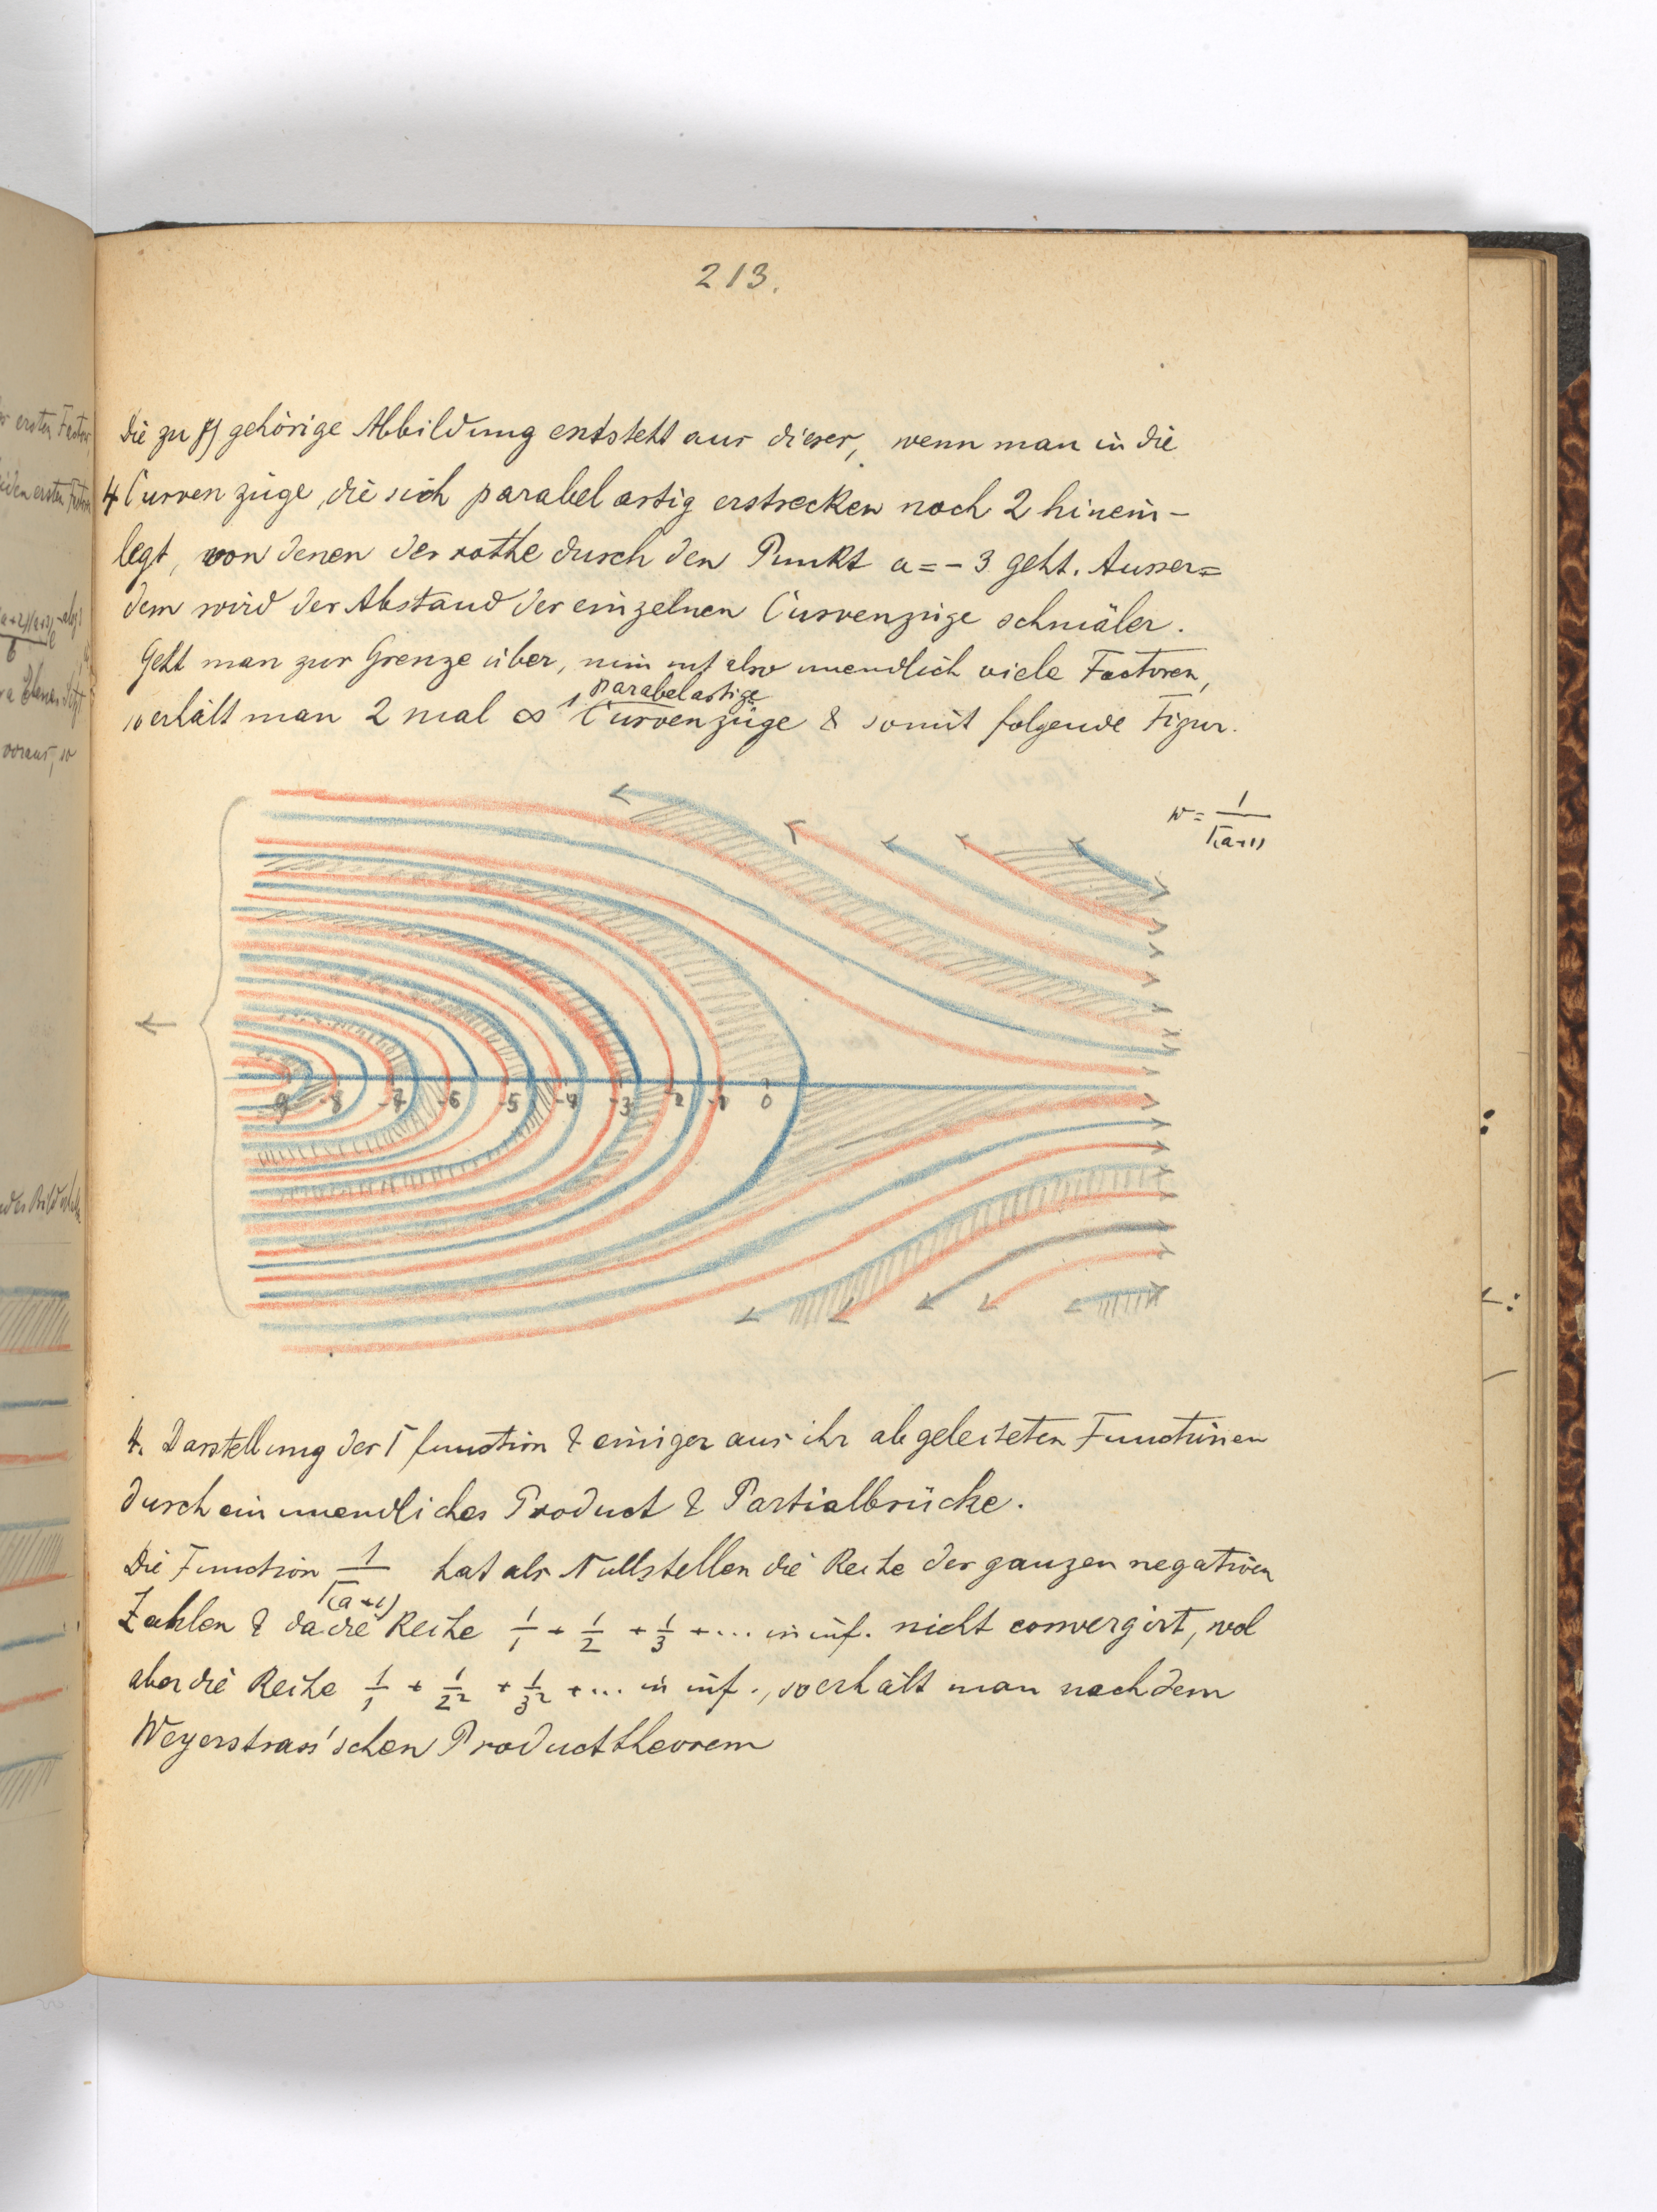 213.
Die zu γ) gehörige Abbildung entsteht aus dieser, wenn man in die
4 Curvenzüge, die sich parabelartig erstrecken noch 2 hinein-
legt, von denen der rothe durch den Punkt a = - 3 geht. Ausser=
dem wird der Abstand der einzelnen Curvenzüge schmäler.
Geht man zur Grenze über, nimmt also unendlich viele Factoren,
parabelartige
so erhält man 2 mal ∞ Curvenzüge & somit folgende Figur.
w = 1/Γ(a+1)
-9 -8 -7 -6 -5 -4 -3 -2 -1 0
4. Darstellung der Γ function & einiger aus ihr abgeleiteten Functionen
durch ein unendliches Product & Partialbrüche.
Die Function 1/Γ(a+1) hat als Nullstellen die Reihe der ganzen negativen
Zahlen & da die Reihe 1/1 + 1/2 + 1/3 + ... in inf. nicht convergirt, wol
aber die Reihe 1/1 + 1/2² + 1/3² + ... in inf., so erhält man nach dem
Weyerstrass'schen Producttheorem